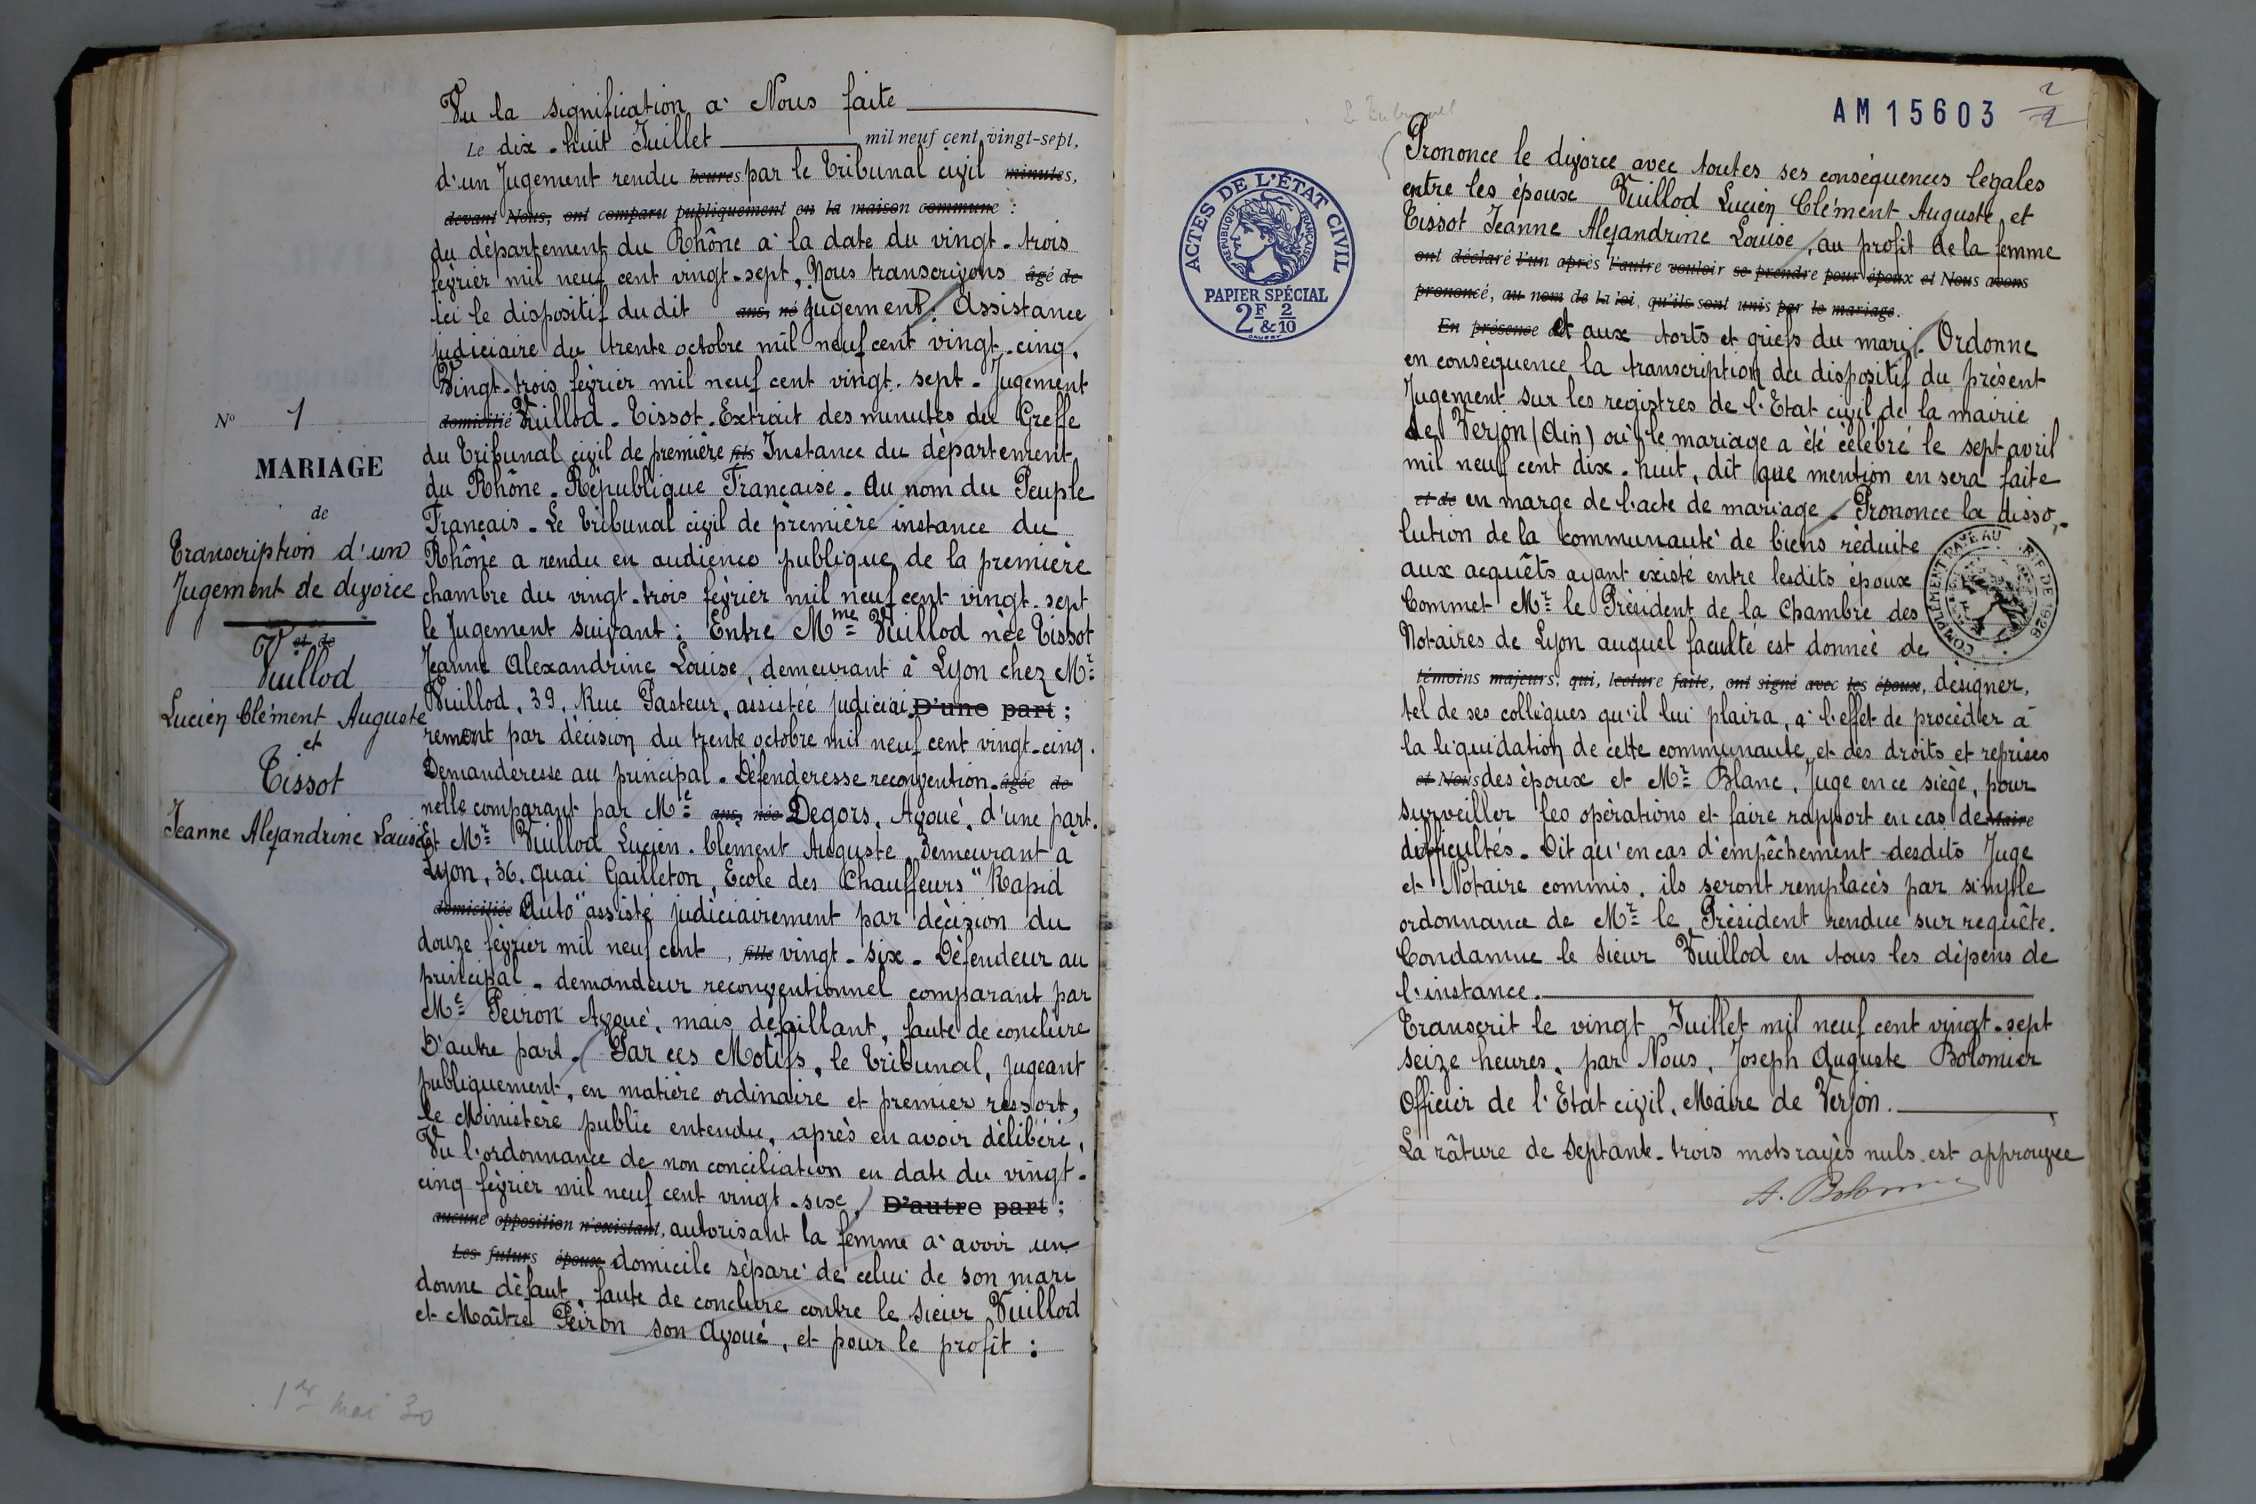 Vu la signification à Nous faite
Le dix-huit Juillet mil neuf cent vingt-sept,
d'un Jugement rendu heures par le Tribunal civil minutes,
devant Nous, ont comparu publiquement en la maison commune :
du département du Rhône à la date du vingt-trois
février mil neuf cent vingt-sept, Nous transcrivons âgé de
ici le dispositif du dit ans, né jugement : Assistance
judiciaire du trente octobre mil neuf cent vingt-cinq.
Vingt-trois février mil neuf cent vingt-sept - Jugement
domicilié Vuillod - Tissot. Extrait des minutes du Greffe
du Tribunal civil de première fils Instance du département
du Rhône - République Française - Au nom du Peuple
Français - Le Tribunal civil de première instance du
Rhône a rendu en audience publique de la première
chambre du vingt-trois février mil neuf cent vingt-sept
le Jugement suivant : Entre Mme Vuillod née Tissot
Jeanne Alexandrine Louise, demeurant à Lyon chez Mr
Vuillod, 39, Rue Pasteur, assistée judiciai- D'une part ;
rement par décision du trente octobre mil neuf cent vingt-cinq.
Demanderesse au principal - Défenderesse reconvention- âgée de
nelle comparant par Me ans, née Degors, Avoué, d'une part.
Et Mr Vuillod Lucien Clément Auguste demeurant à
Lyon, 36, quai Gailleton, Ecole des Chauffeurs "Rapid
domiciliée Auto" assisté judiciairement par décision du
douze février mil neuf cent , fille vingt-six - Défendeur au
principal - demandeur reconventionnel comparant par
Me Peiron Avoué, mais défaillant, faute de conclure
D'autre part. Par ces Motifs, le Tribunal, jugeant
publiquement, en matière ordinaire et premier ressort,
le Ministère public entendu, après en avoir délibéré,
Vu l'ordonnance de non conciliation en date du vingt-
cinq février mil neuf cent vingt-six, D'autre part ;
aucune opposition n'existant, autorisant la femme à avoir un
Les futurs époux domicile séparé de celui de son mari
donne défaut, faute de conclure contre le sieur Vuillod
et Maître Peiron son Avoué, et pour le profit :
No 1
MARIAGE
de
Transcription d'un
Jugement de divorce
V et de
Vuillod
Lucien Clément Auguste
et
Tissot
Jeanne Alexandrine Louise
1er mai 30
AM 15603
2
Le Tribunal
ACTES DE L'ÉTAT CIVIL
RÉPUBLIQUE FRANÇAISE
PAPIER SPÉCIAL
2F & 2/10
Prononce le divorce avec toutes ses conséquences légales
entre les époux Vuillod Lucien Clément Auguste, et
Tissot Jeanne Alexandrine Louise, au profit de la femme
ont déclaré l'un après l'autre vouloir se prendre pour époux et Nous avons
prononcé, au nom de la loi, qu'ils sont unis par le mariage.
En présence de et aux torts et griefs du mari. Ordonne
en conséquence la transcription du dispositif du présent
Jugement sur les registres de l'Etat civil de la mairie
de Verjon (Ain) où le mariage a été célébré le sept avril
mil neuf cent dix-huit, dit que mention en sera faite
et de en marge de l'acte de mariage. Prononce la disso-
lution de la communauté de biens réduite
aux acquêts ayant existé entre lesdits époux
Commet Mr le Président de la Chambre des
Notaires de Lyon auquel faculté est donnée de
témoins majeurs, qui, lecture faite, ont signé avec les époux, désigner,
tel de ses collègues qu'il lui plaira, à l'effet de procéder à
la liquidation de cette communauté, et des droits et reprises
et Nous des époux et Mr Blanc, Juge en ce siège, pour
surveiller les opérations et faire rapport en cas de Maire
difficultés - Dit qu'en cas d'empêchement desdits Juge
et Notaire commis, ils seront remplacés par simple
ordonnance de Mr le Président rendue sur requête.
Condamne le sieur Vuillod en tous les dépens de
l'instance.
Transcrit le vingt Juillet mil neuf cent vingt-sept
seize heures, par Nous, Joseph Auguste Bolomier
Officier de l'Etat civil, Maire de Verjon.
La râture de septante-trois mots rayés nuls est approuvée
A. Bolomier
COMPLÉMENT PAYÉ AU DE 1926